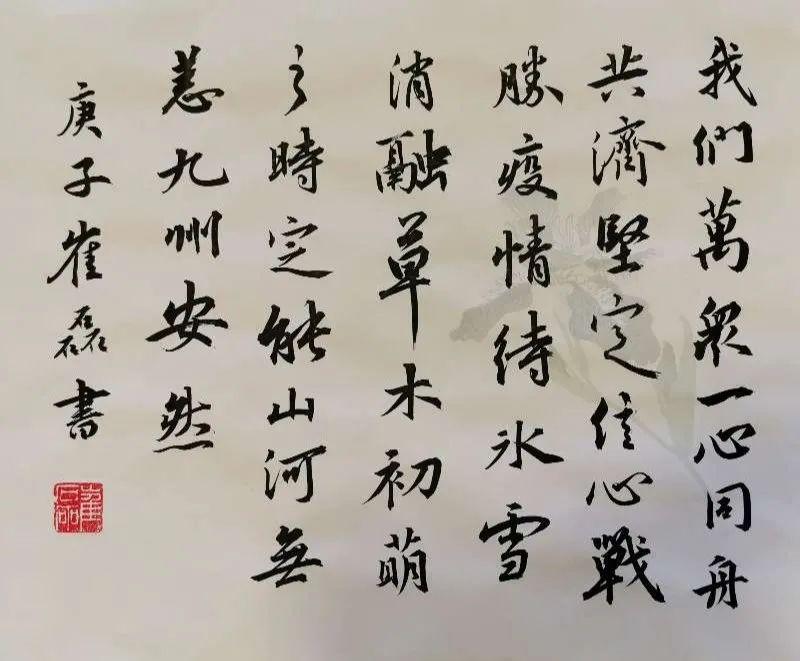 我們萬眾一心同舟
共濟堅定信心戰
勝疫情待氷雪
消融草木初萌
之時定能山河無
恙九州安然
庚子崔磊書
崔磊